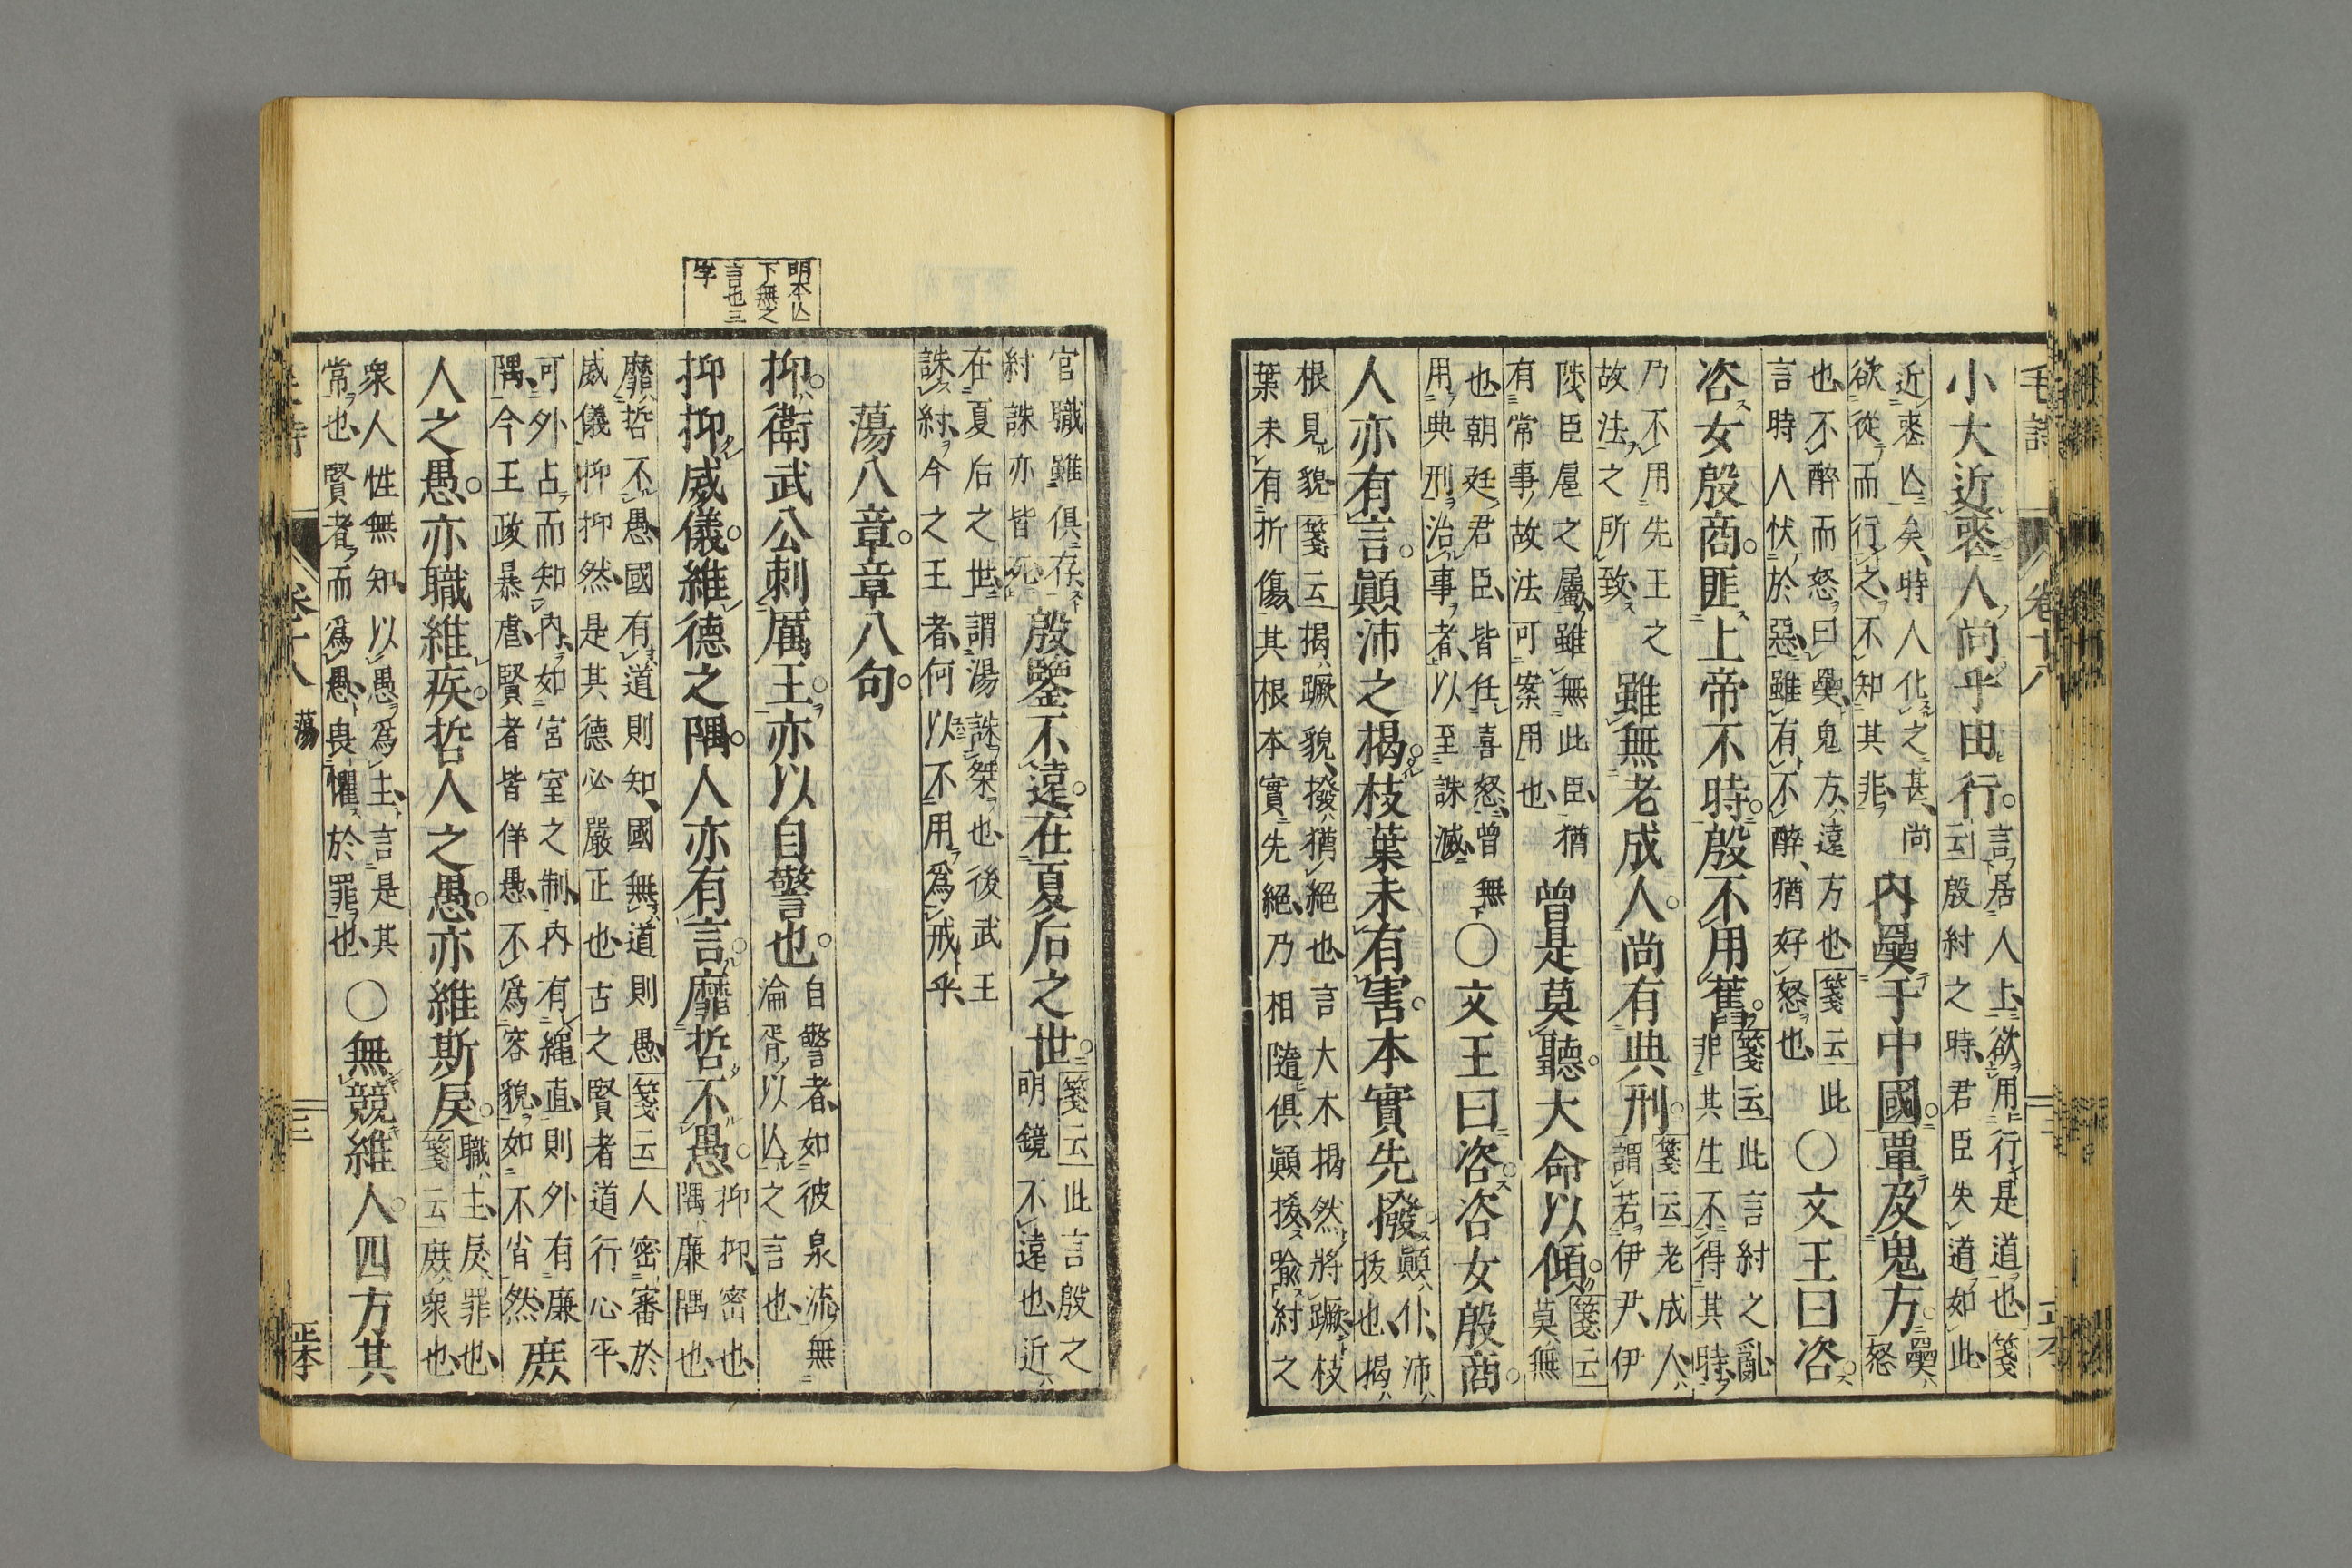 小大近喪人尚乎由行言居人上欲用行是道也箋
云殷紂之時君臣失道如此
近喪亾矣時人化之甚尚
欲從而行之不知其非
内奰于中國覃及鬼方奰
怒
也不醉而怒曰奰鬼方遠方也箋云此
言時人忕於惡雖有不醉猶好怒也
○文王曰咨
咨女殷商匪上帝不時殷不用舊箋云此言紂之亂
非其生不得其時
乃不用先王之
故法之所致
雖無老成人尚有典刑箋云老成人
謂若伊尹伊
陟臣扈之屬雖無此臣猶
有常事故法可案用也
曾是莫聽大命以傾箋云
莫無
也朝廷君臣皆任喜怒曾無
用典刑治事者以至誅滅
○文王曰咨咨女殷商
人亦有言顚沛之揭枝葉未有害本實先撥顚仆沛
拔也揭
根見貌箋云揭蹶貌撥猶絕也言大木揭然將蹶枝
葉未有折傷其根本實先絕乃相隨俱顚拔喩紂之
官職雖俱存
紂誅亦皆死
殷鑒不遠在夏后之世箋云此言殷之
明鏡不遠也近
在夏后之世謂湯誅桀也後武王
誅紂今之王者何以不用爲戒乎
蕩八章章八句
抑衛武公刺厲王亦以自警也自警者如彼泉流無
淪胥以亾之言也
抑抑威儀維德之隅人亦有言靡哲不愚抑抑密也
隅廉隅也
靡哲不愚國有道則知國無道則愚箋云人密審於
威儀抑抑然是其德必嚴正也古之賢者道行心平
可外占而知内如宮室之制内有繩直則外有廉
隅今王政暴虐賢者皆佯愚不爲容貌如不省然
庶
人之愚亦職維疾哲人之愚亦維斯戾職主戾罪也
箋云庶衆也
衆人性無知以愚爲主言是其
常也賢者而爲愚畏懼於罪也
○無競維人四方其
明本亾
下無之
言也三
字
卷十八
蕩
三